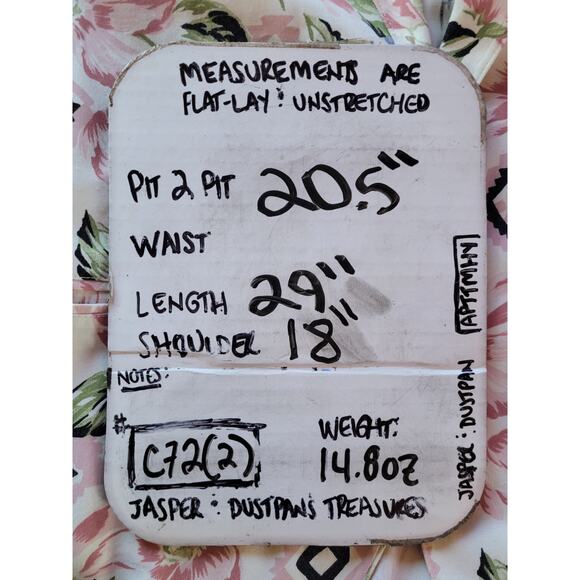 MEASUREMENTS ARE
FLAT-LAY : UNSTRETCHED
PIT 2 PIT 20.5"
WAIST
LENGTH 29"
SHOULDER 18"
NOTES:
#
C72(2)
WEIGHT:
14.8oz
JASPER : DUSTPANS TREASURES
JASPER : DUSTPAN